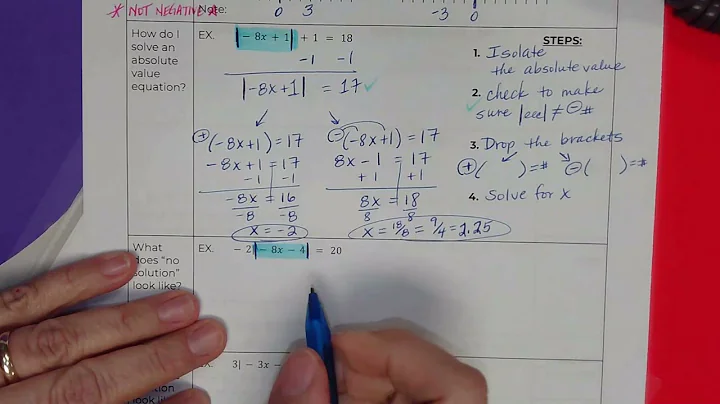 * NOT NEGATIVE * Note: 0 3 -3 0
How do I
solve an
absolute
value
equation?
EX. |− 8x + 1| + 1 = 18
-1 -1
|-8x+1| = 17 ✓
⊕(-8x+1)=17
-8x+1=17
-1 -1
-8x = 16
-8 -8
x = -2
⊖(-8x+1)=17
8x-1=17
+1 +1
8x = 18
8 8
x = 18/8 = 9/4 = 2.25
STEPS:
1. Isolate
the absolute value
2. check to make
✓ sure |eee| ≠ ⊖#
3. Drop the brackets
⊕( )=# ⊖( )=#
4. Solve for x
What
does "no
solution"
look like?
EX. − 2|− 8x − 4| = 20
3|− 3x −